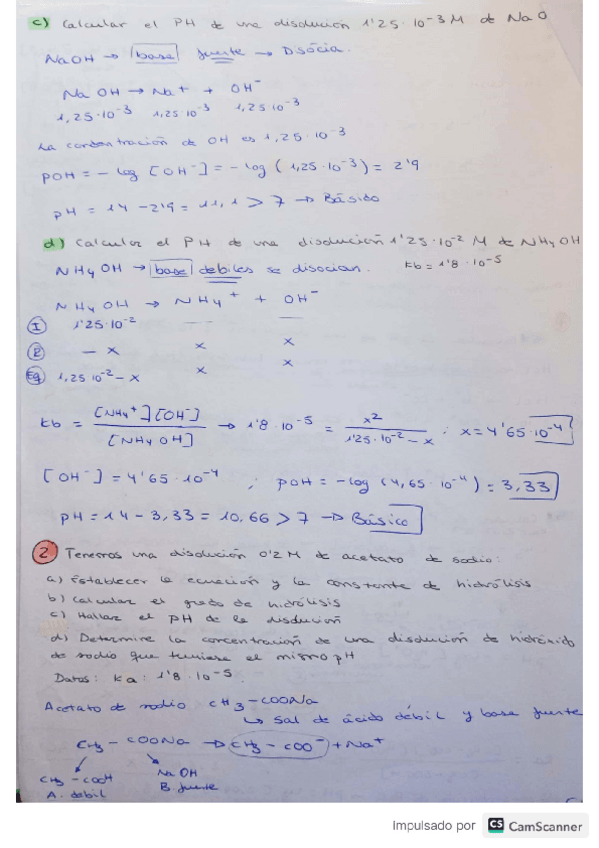 c) Calcular el PH de una disolución 1'25·10-3 M de Na O
NaOH → base fuerte → Disócia.
Na OH → Na+ + OH-
1,25·10-3 1,25 10-3 1,25 10-3
La concentración de OH es 1,25·10-3
pOH = - log [OH-] = - log (1,25·10-3) = 2'9
pH = 14 - 2'9 = 11,1 > 7 → Básico
d) Calcular el PH de una disolución 1'25·10-2 M de NH4OH
NH4OH → base debiles se disocian. Kb = 1'8·10-5
NH4OH → NH4+ + OH-
I 1'25·10-2 — —
R - x x x
Eq 1,25 10-2 - x x x
Kb = [NH4+][OH-] / [NH4OH] → 1'8·10-5 = x2 / 1'25·10-2 - x ; x = 4'65·10-4
[OH-] = 4'65·10-4 ; pOH = -log (4,65·10-4) = 3,33
pH = 14 - 3,33 = 10,66 > 7 → Básico
2 Tenemos una disolución 0'2 M de acetato de sodio:
a) Establecer la ecuación y la constante de hidrólisis
b) Calcular el grado de hidrólisis
c) Hallar el pH de la disolución
d) Determine la concentración de una disolución de hidróxido
de sodio que tuviese el mismo pH
Datos: Ka: 1'8·10-5.
Acetato de sodio: CH3-COONa
↳ Sal de ácido débil y base fuerte
CH3-COONa → CH3-COO- + Na+
CH3-COOH Na OH
A. debil B. fuerte
Impulsado por CS CamScanner